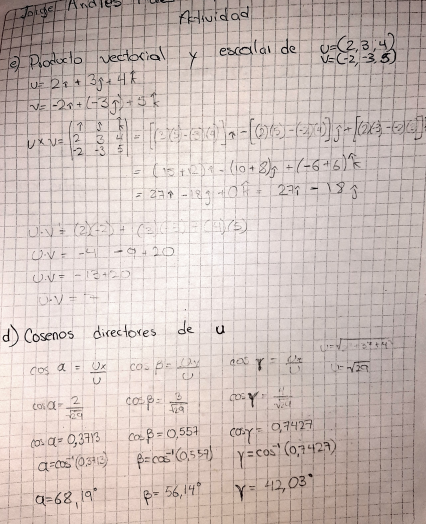 Jorge Andres
Actividad
e) Producto vectorial y escalar de u=(2,3,4)
v=(-2,-3,5)
u=2î+3ĵ+4k̂
v=-2î+(-3ĵ)+5k̂
u×v=|î ĵ k̂; 2 3 4; -2 -3 5|=[(3)(5)-(-3)(4)]î-[(2)(5)-(-2)(4)]ĵ+[(2)(-3)-(-2)(3)]
=(15+12)î-(10+8)ĵ+(-6+6)k̂
=27î-18ĵ+0k̂=27î-18ĵ
u·v=(2)(-2)+
u·v=-4-9+20
u·v=-13+20
u·v=
d) Cosenos directores de u
cos α=Ux/U cos β=Uy/U cos γ=
u=√29
cos α=2/√29 cos β=3/√29 cos γ=
cos α=0,3713 cos β=0,557 cos γ=0,7427
α=cos⁻¹(0,3713) β=cos⁻¹(0,557) γ=cos⁻¹(0,7427)
α=68,19° β=56,14° γ=42,03°